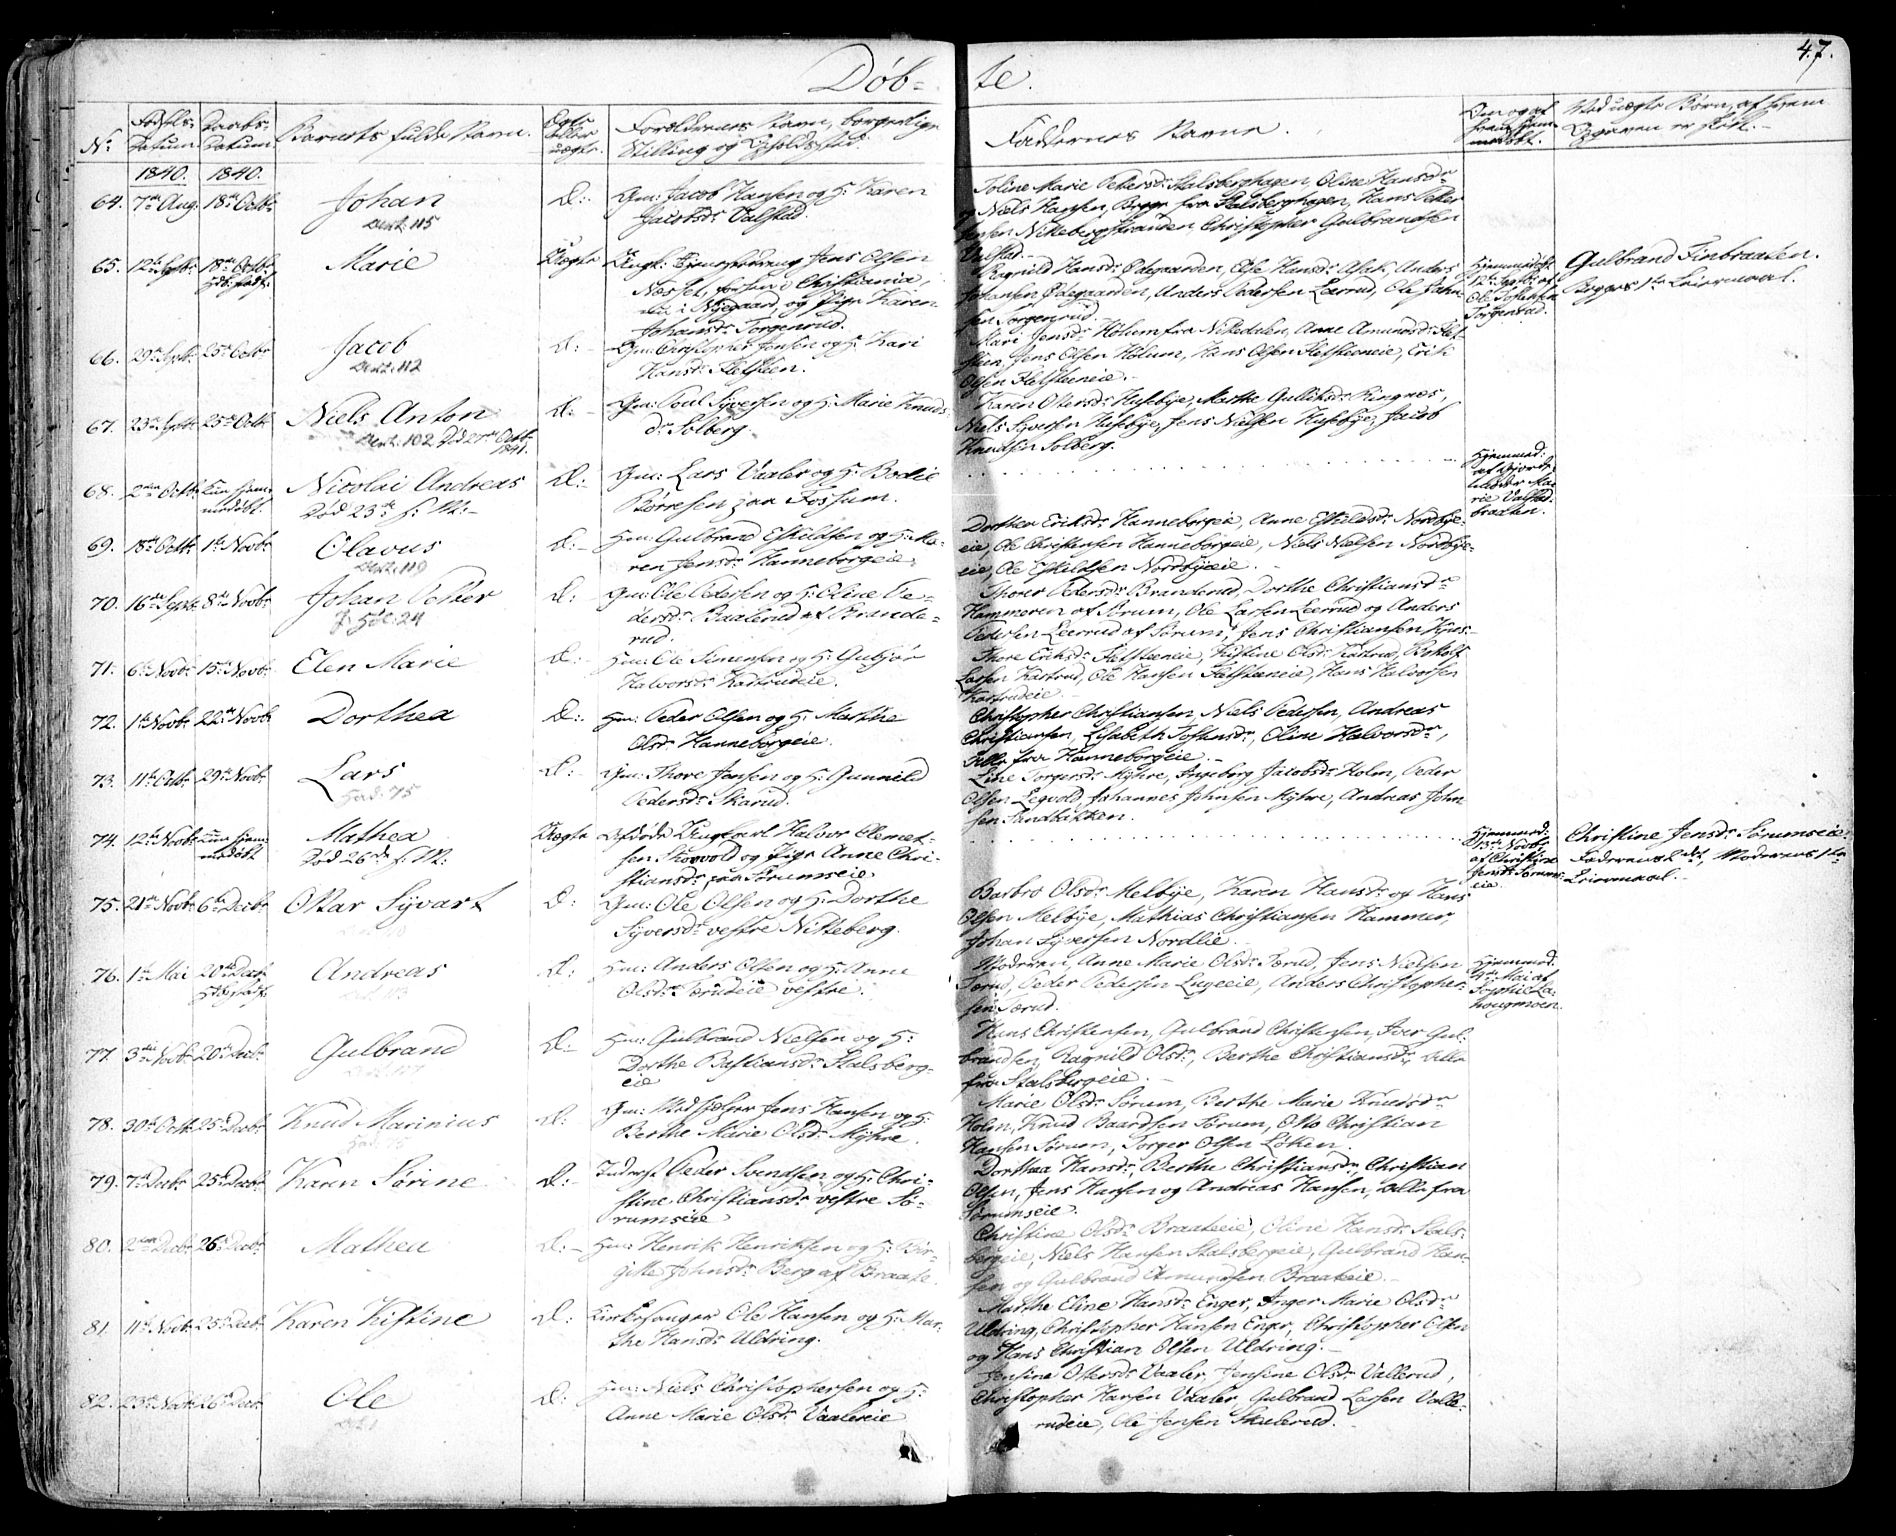 Døb=
te.
47.
No
Fødsels-
Datum
Daabs-
Datum
Barnets fulde Navn.
Ægte
eller
uægte
Forældrenes Navn, borgerlige
Stilling og Opholdssted.
Faddernes Navne.
Om og af
hvem hjem-
medøbt.
Ved uægte Børn, af hvem
Opgaven er skeet.
1840.
1840.
64.
7de Aug.
18de Octb:
Johan
Vat: 115
Æ:
Gm: Jacob Hansen og H: Karen
Jacobsdr Valstad.
Toline Marie Pettersdr Stalsberghagen, Oline Hansdr
Niels Hansen, Begge fra Stalsberghagen, Hans Petter
Jensen Nittebergstranden, Christopher Gulbrandsen
Valstad.
65.
12te Septbr
18de Octb:
Marie
Uægte
Ungk: Jens Olsen
Næsset, forhen i Christiania,
nu i Nygaard, og Pige Karen
Johansdr Torgenrud.
Ragnild Hansdr Ødegaarden, Else Hansdr Asak, Anders
Johansen Ødegaarden, Anders Pedersen Leerud, Ole Johan-
sen Torgenrud.
Hjemmedøbt
12te Septbr af
Torgenrud.
Gulbrand Finbraaten.
Begges 1ste Leiermaal.
66.
29de Septb:
25de Octbr
Jacob
Vat: 112
Æ:
Gm: Christopher Jensen og H: Kari
Hansdr Helsteen.
Mari Jensdr Holum fra Nittedalen, Anne Amundsdr Hel-
steen, Jens Olsen Holum, Hans Olsen Helsteeneie, Erik
Olsen Helsteeneie.
67.
23de Septb:
25de Octb:
Niels Anton
Vat: 102 Død 27de Octbr
1841.
Æ:
Gm: Poul Syversen og H: Marie Knuds
dr Solberg.
Karen Ottersdr Husebye, Marthe Gulliksdr Ringnæs,
Niels Syversen Husebye, Jens Nielsen Husebye, Jacob
Knudsen Solberg.
68.
2den Octb:
kun hjem-
medøbt.
Nicolai Andreas
Død 23de s. M:
Æ:
Gm: Lars Vaaler og H: Bodil
Børresen paa Fossum.
Hjemmed:
af Gjord-
moder Ma-
rie Valstad-
braaten.
69.
18de Octb:
1ste Novb:
Olavus
Vat: 119
Æ:
Hm: Gulbrand Eskildsen og H: Ma-
ren Jensdr Hanneborgeie.
Dorthea Eriksdr Hanneborgeie, Anne Eskildsdr Nordbye-
eie, Ole Christensen Hanneborgeie, Niels Nielsen Nordbye-
eie, Ole Eskildsen Nordbyeeie.
70.
16de Septb:
8de Novb:
Johan Petter
Æ:
Gm: Ole Pedersen og H: Oline Pe-
dersdr Baalerud af Brande-
rud.
Thorer Pedersdr Branderud, Dorthe Christiansdr
Hammeren af Sørum, Ole Larsen Leerud og Anders
Pedersen Leerud af Sørum, Jens Christiansen
71.
6te Novb:
15de Novb:
Elen Marie
Æ:
Hm: Ole Simensen og H: Gubjør
Halvorsdr Kastrudeie.
Thore Eriksdr Helsteeneie, Kistine Olsdr Kastrud,
Larsen Kastrud, Ole Hansen Helsteeneie, Hans Halvorsen
Kastrudeie.
72.
1ste Novb:
22de Novb:
Dorthea
Æ:
Hm: Peder Olsen og H: Marthe
Olsdr Hanneborgeie.
Christopher Christiansen, Niels Pedersen, Andreas
Christiansen, Lisabeth Tostensdr, Oline Halvorsdr,
Alle fra Hanneborgeie.
73.
11te Octb:
29de Novb:
Lars
Æ:
Gm: Thore Jensen og H: Gunnild
Pedersdr Skarud.
Line Torgersdr Myhre, Ingeborg Jacobsdr Holm, Peder
Olsen Legvold, Johannes Johnsen Myhre, Andreas John
sen Sandbikken.
74.
12te Novb:
kun hjem-
medøbt
Mathea
Død 26de s. M:
Uægte
Afdøde Ungkarl Halvor Clemet-
sen Skovold og Pige Anne Chri-
stiansdr paa Sørumseie
Hjemmed:
13de Novb:
af Christine
Jensdr Sørums-
eie.
Christine Jensdr Sørumseie.
Faderens 2det, Moderens 1ste
Leiermaal.
75.
21de Novb:
6te Decb:
Ottar Syvart
Æ:
Gm: Ole Olsen og H: Dorthe
Syversdr vestre Nitteberg.
Barbro Olsdr Melbye, Karen Hansdr og Hans
Olsen Melbye, Mathias Christiansen Hammer,
Johan Syversen Nordlie.
76.
1ste Mai
20de Decb:
Andreas
Æ:
Hm: Anders Olsen og H: Anne
Olsdr Tærudeie vestre.
Moderen, Anne Marie Olsdr Tærud, Jens Nielsen
Tærud, Peder Pedersen Lugeeie, Anders Christopher-
sen Tærud.
Hjemmed:
4de Mai af
Sophie La-
hougmoen.
77.
3die Novb:
20de Decb:
Gulbrand
Æ:
Hm: Gulbrand Nielsen og H:
Dorthe Bastiansdr Stalsberg-
eie
Hans Christensen, Gulbrand Christensen, Iver Gul-
brandsen, Ragnild Olsdr, Berthe Christiansdr, Alle
fra Stalsbergeie.
78.
30de Octb:
25de Decb:
Knud Marinius
Æ:
Gm: Medhjelper Jens Hansen og H:
Berthe Marie Olsdr Myhre.
Marie Olsdr Sørum, Berthe Marie Knudsdr
Holm, Knud Baardsen Sørum, Otto Christian
Hansen Sørum, Torger Olsen Løken.
79.
7de Decb:
25de Decb:
Karen Sørine
Æ:
Inderst Peder Svendsen og H: Chri-
stine Christiansdr vestre Sø-
rumseie
Dorthea Hansdr, Berthe Christiansdr, Christian
Olsen, Jens Hansen og Andreas Hansen, Alle fra
Sørumseie.
80.
2den Decb:
26de Decb:
Mathea
Æ:
Hm: Henrik Henriksen og H: Bir-
gitte Johnsdr Berg af Braate.
Christine Olsdr Braateeie, Oline Hansdr Stals-
bergeie, Niels Hansen Stalsbergeie, Gulbrand Han-
sen og Gulbrand Amundsen Braateeie.
81.
11te Novb:
25de Decb:
Karen Kistine
Æ:
Kirkesanger Ole Hansen og H: Mar-
the Hansdr Uldring.
Marthe Eline Hansdr Enger, Inger Marie Olsdr
Uldring, Christopher Hansen Enger, Christopher Olsen
og Hans Christian Olsen Uldring.
82.
23de Novb:
26de Decb:
Ole
Æ:
Hm: Niels Christophersen og H:
Anne Marie Olsdr Vaalereie
Jensine Ottersdr Vaaler, Jensine Olsdr Vallerud,
Christopher Hansen Vaaler, Gulbrand Larsen Valle-
rudeie, Ole Jensen Skulerud.